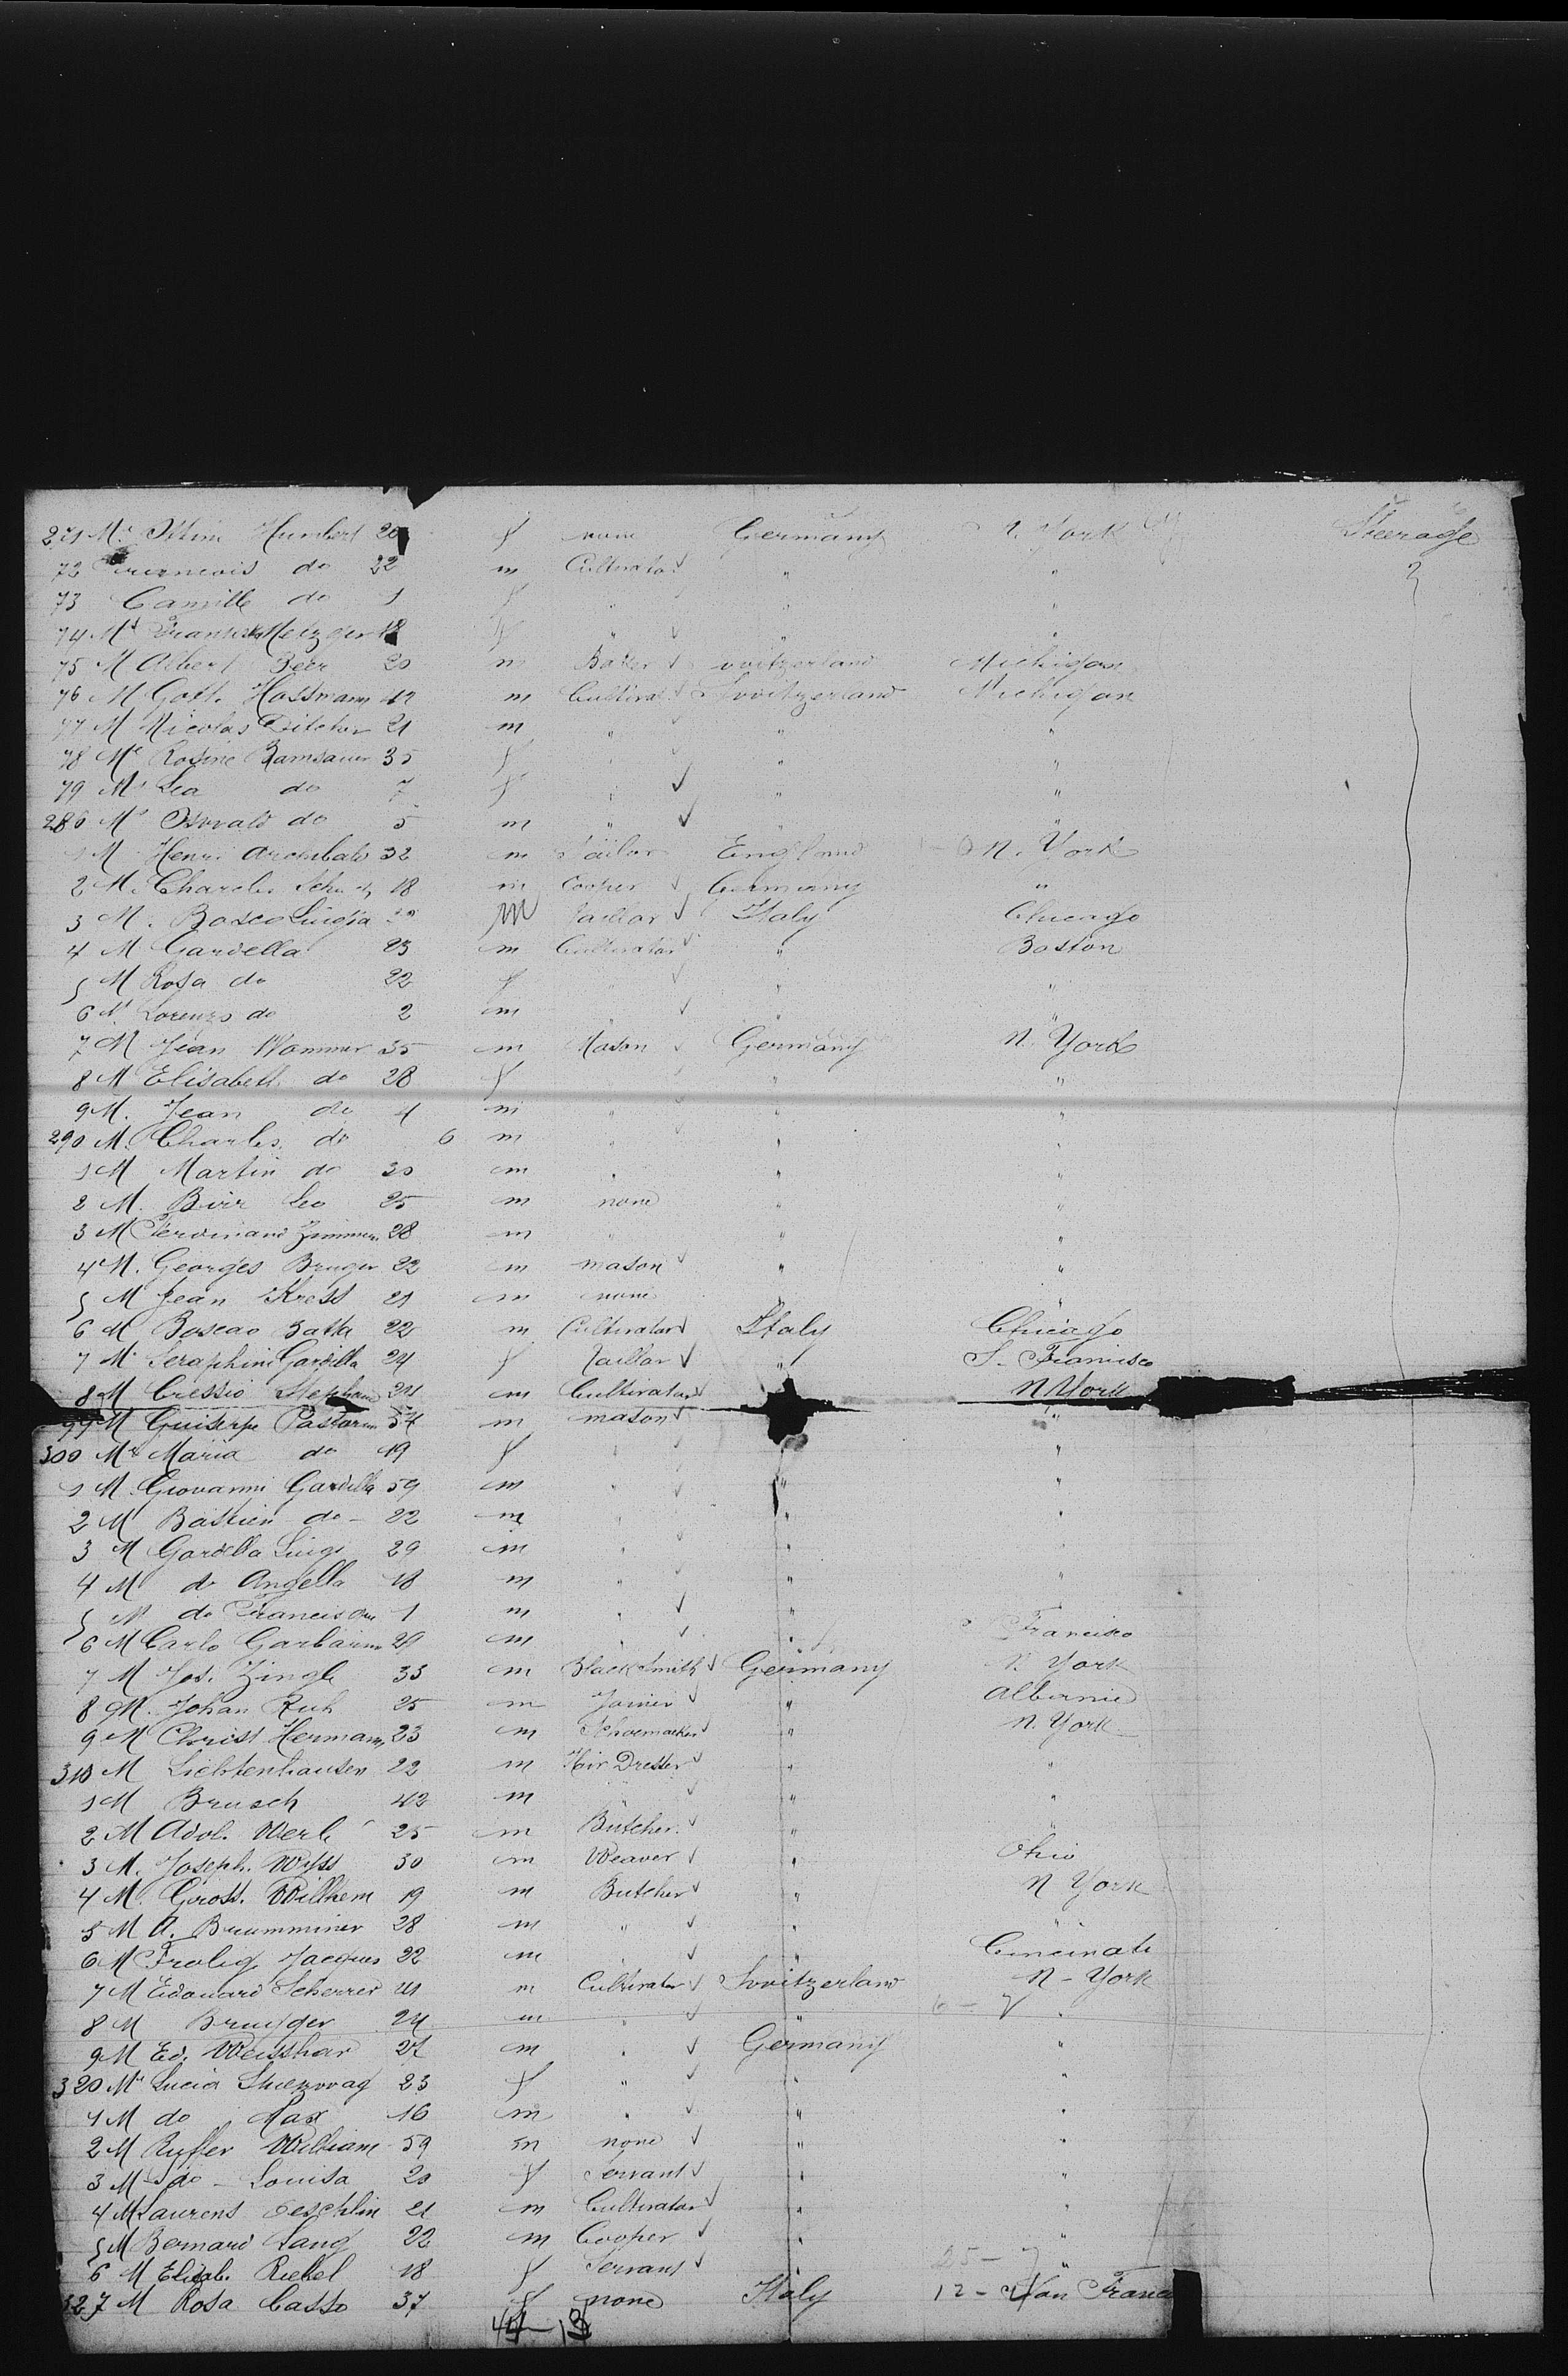 271 Me Humbert 20 f none Germany N. York Steerage
72 Francois do 22 m Cultivator " "
73 Camille do 1 f " " "
74 Metzger 18 f " " "
75 M Albert Beer 20 m Baker Switzerland Michigan
76 M Gott. Hossmann 42 m Cultivat. Switzerland Michigan
77 M Nicolas 21 m " " "
78 Me Rosine Ramsauer 35 f " " "
79 Me Lea do 7 f " " "
280 M Oswald do 5 m " " "
1 M Henri Archibald 32 m Tailor England N. York
2 M. Charles 18 m Cooper Germany "
3 M. Bosco Luigia m Taillor Italy Chicago
4 M Gardella 23 m Cultivator " Boston
5 M Rosa do 22 f " " "
6 M Lorenzo do 2 m " "
7 M Jean Wommer 35 m Mason Germany N. York
8 M Elisabeth do 28 f " "
9 M. Jean do 4 m " " "
290 M. Charles do 6 m " " "
1 M Martin do 30 m " " "
2 M. Birr Leo 25 m none " "
3 M Ferdinand Zimmer. 28 m " " "
4 M. Georges Bruger 22 m mason " "
5 M Jean Kress 21 m none " "
6 M Boscao Batta 22 m Cultivator Italy Chicago
7 M Seraphini Gardella 24 f Taillor " S. Francisco
8 M Cressio Stephano 24 m Cultivator N York
99 M Guiserpe Pastarin 54 m mason "
300 Me Maria do 19 f " "
1 M. Giovanni Gardella 59 m " " "
2 M Bastien do - 22 m " " "
3 M Gardella Luigi 29 m " " "
4 M do Angella 18 m " " "
5 M do 1 m " "
6 M Carlo Garbarino 29 m " " Francisco
7 M Jos. Zingle 33 m Black Smith Germany N. York
8 M. Johan Ruh 25 m Joiner " Albanie
9 M Christ Hermann 23 m Schoemacker " N. York
310 M Lichtenhausen 22 m Hair Dresser " "
1 M Brusch 42 m " " "
2 M Adol. Werle 25 m Butcher. " "
3 M. Joseph. Wyss 30 m Weaver " Ohio
4 M. Gross. Willhem 19 m Butcher " N York
5 M A. Brumminer 28 m " " "
6 M Frolig Jacques 22 m " " Cincinati
7 M Edouard Scherrer 41 m Cultivator Switzerland N - York
8 M Brugger 24 m " " "
9 M Ed. Weisshar 27 m " Germany "
320 Me Lucia 23 f " " "
1 M do Max 16 m " " "
2 M Ruffer William 59 m none " "
3 M do - Louisa 20 f Servant " "
4 M Laurens Oeschlin 21 m Cultivator " "
5 M Bernard Lang 22 m Cooper " "
6 M Elisab. Riebel 18 f Servant " "
327 M Rosa Casso 37 f none Italy San Franc
44-13